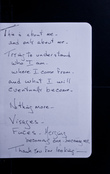 This is about me.
and only about me.
Trying to understand
who I am
where I come from.
and what I will
eventually become.
Nothing more.
Visages.
Faces.
Thank you for looking